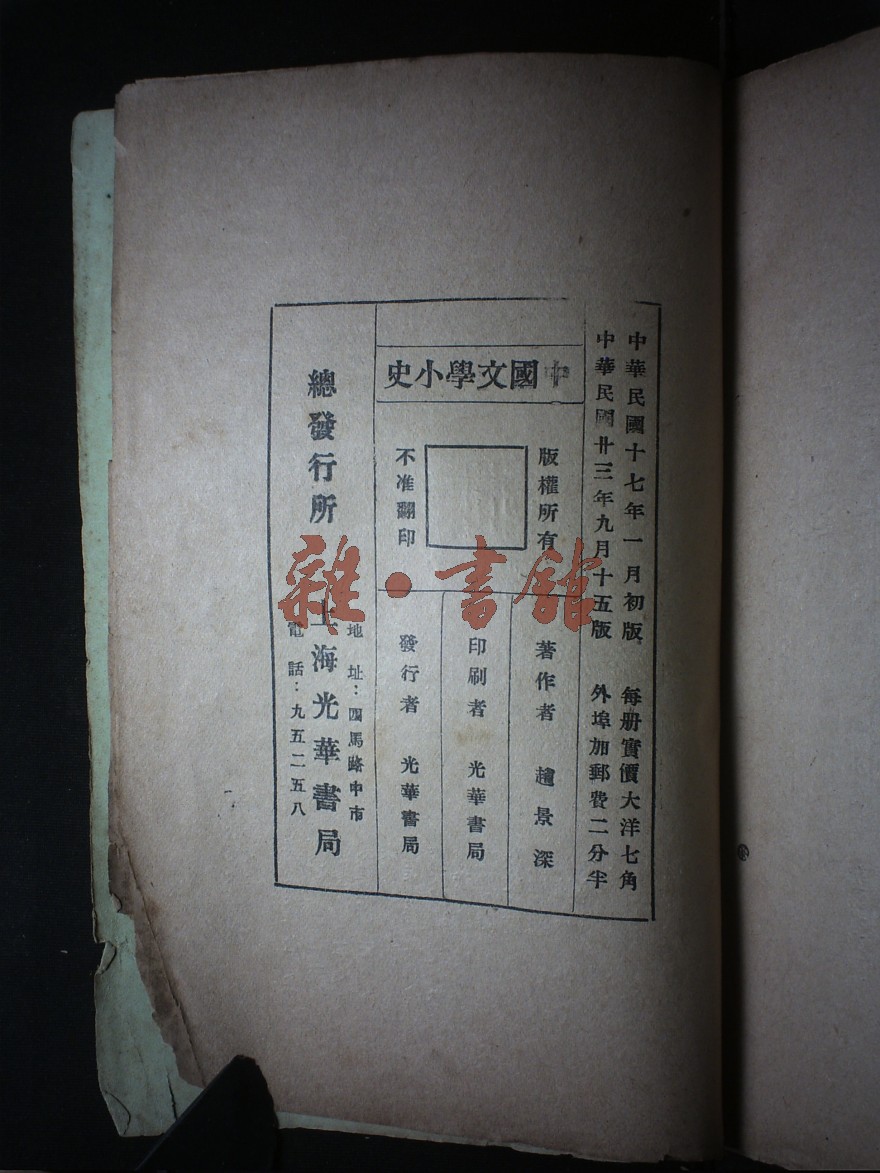 中華民國十七年一月初版 每册實價大洋七角
中華民國廿三年九月十五版 外埠加郵費二分半
中國文學小史
版權所有
不准翻印
著作者 趙景深
印刷者 光華書局
發行者 光華書局
總發行所 上海光華書局
地址：四馬路中市
電話：九五二五八
雜·書館